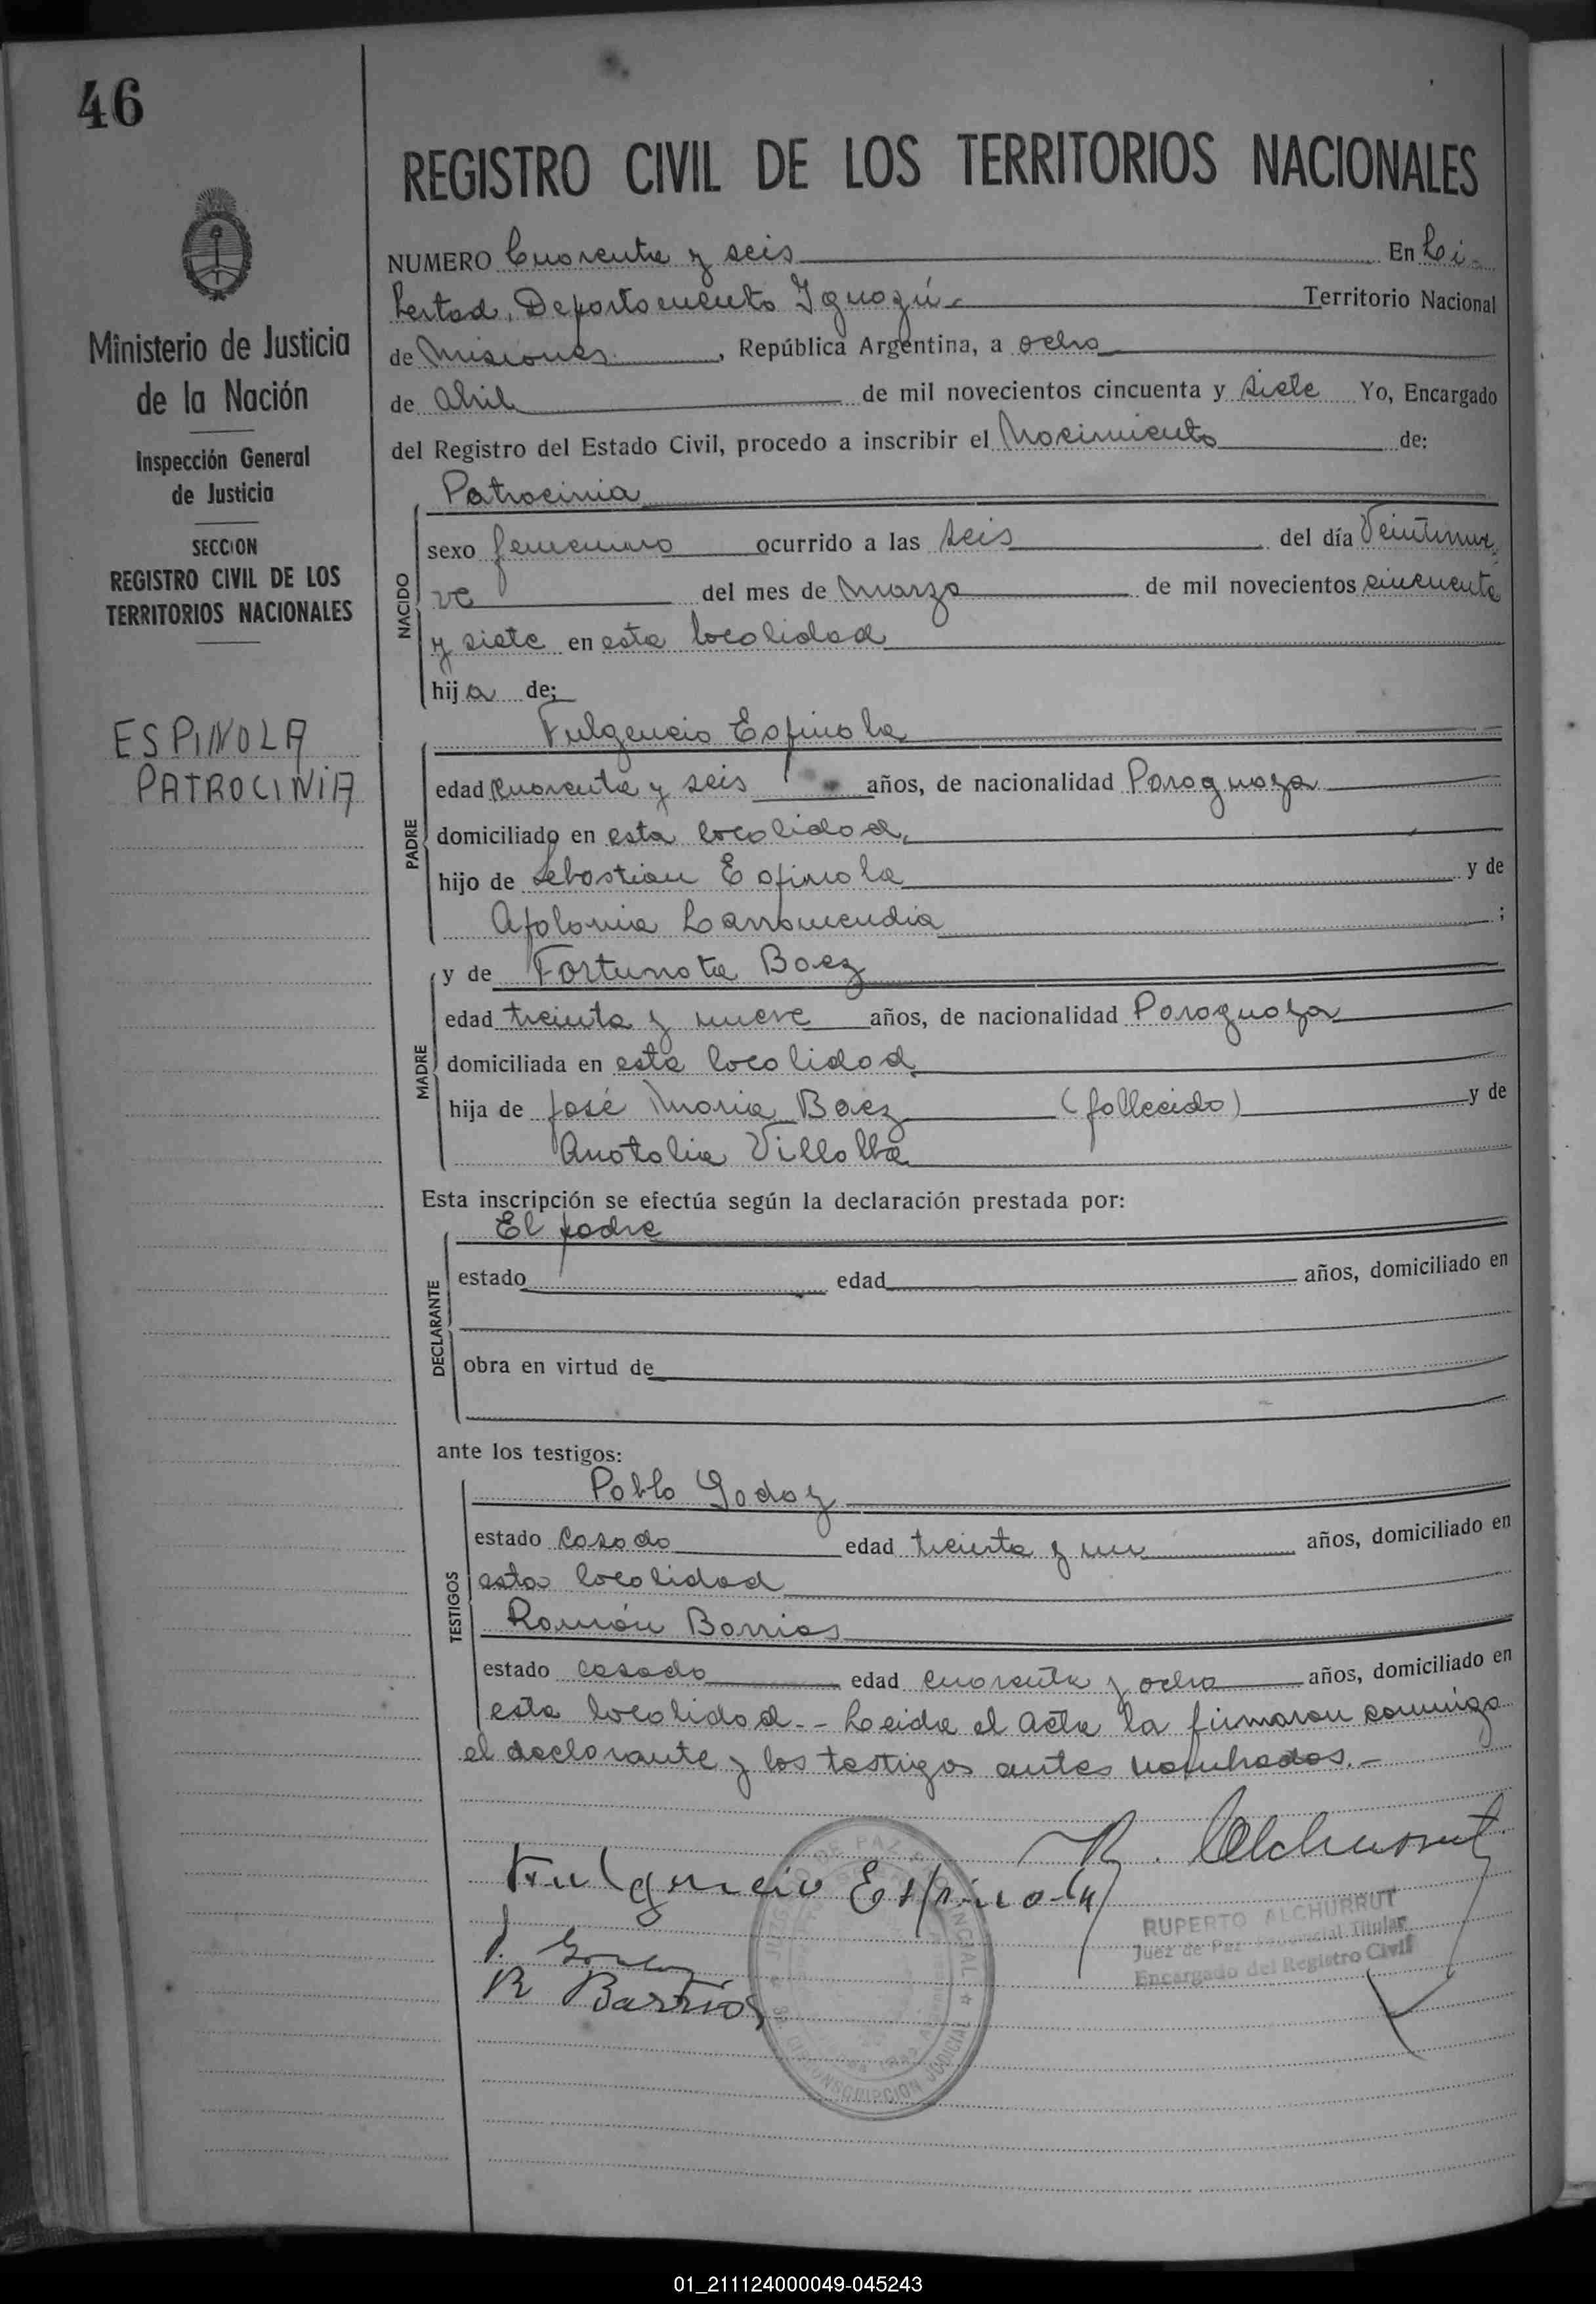 46
Ministerio de Justicia
de la Nación
Inspección General
de Justicia
SECCION
REGISTRO CIVIL DE LOS
TERRITORIOS NACIONALES
ESPINOLA
PATROCINIA
REGISTRO CIVIL DE LOS TERRITORIOS NACIONALES
NUMERO Cuarenta y seis En Li-
bertad, Departamento Iguazú.- Territorio Nacional
de Misiones, República Argentina, a ocho
de abril de mil novecientos cincuenta y siete Yo, Encargado
del Registro del Estado Civil, procedo a inscribir el Nacimiento de:
NACIDO
Patrocinia
sexo femenino ocurrido a las seis del día Veintinue
ve del mes de Marzo de mil novecientos cincuenta
y siete en esta localidad
hija de:
PADRE
Fulgencio Espinola
edad cuarenta y seis años, de nacionalidad Paraguaya
domiciliado en esta localidad,
hijo de Sebastian Espinola y de
Apolonia Larromendia ;
MADRE
y de Fortunata Baez
edad treinta y nueve años, de nacionalidad Paraguaya
domiciliada en esta localidad,
hija de José Maria Baez (fallecido) y de
Anatolia Villalba
Esta inscripción se efectúa según la declaración prestada por:
DECLARANTE
El padre
estado edad años, domiciliado en
obra en virtud de
ante los testigos:
TESTIGOS
Pablo Godoy
estado Casado edad treinta y un años, domiciliado en
esta localidad
Ramón Barrios
estado casado edad cuarenta y ocho años, domiciliado en
esta localidad.- Leida el acta la firmaron conmigo
el declarante y los testigos antes nombrados.-
R. Alchurrut
Fulgencio Espinola
RUPERTO ALCHURRUT
Juez de Paz Titular
Encargado del Registro Civil
P.
R Barrios
DE PAZ
CIRCUNSCRIPCION JUDICIAL
01_211124000049-045243